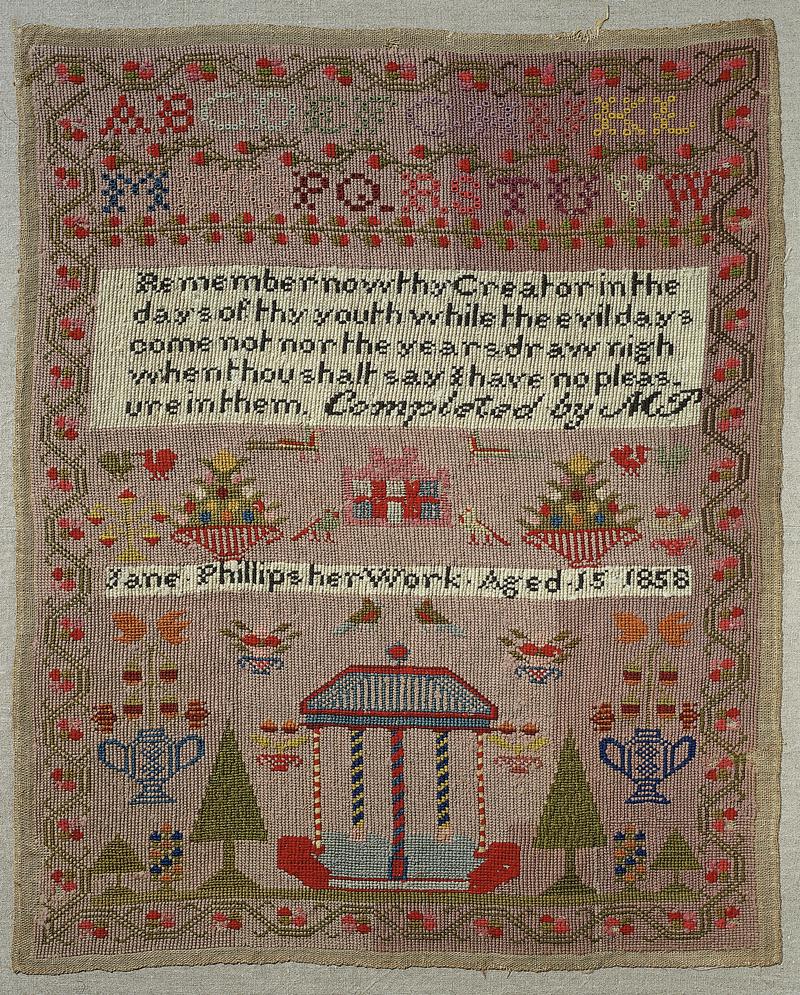 A B C D E F G H I J K L
M P Q R S T U V W
Remember now thy Creator in the
days of thy youth while the evil days
come not nor the years draw nigh
when thou shalt say I have no pleas.
ure in them. Completed by MP
Jane · Phillips her Work · Aged · 15 1858